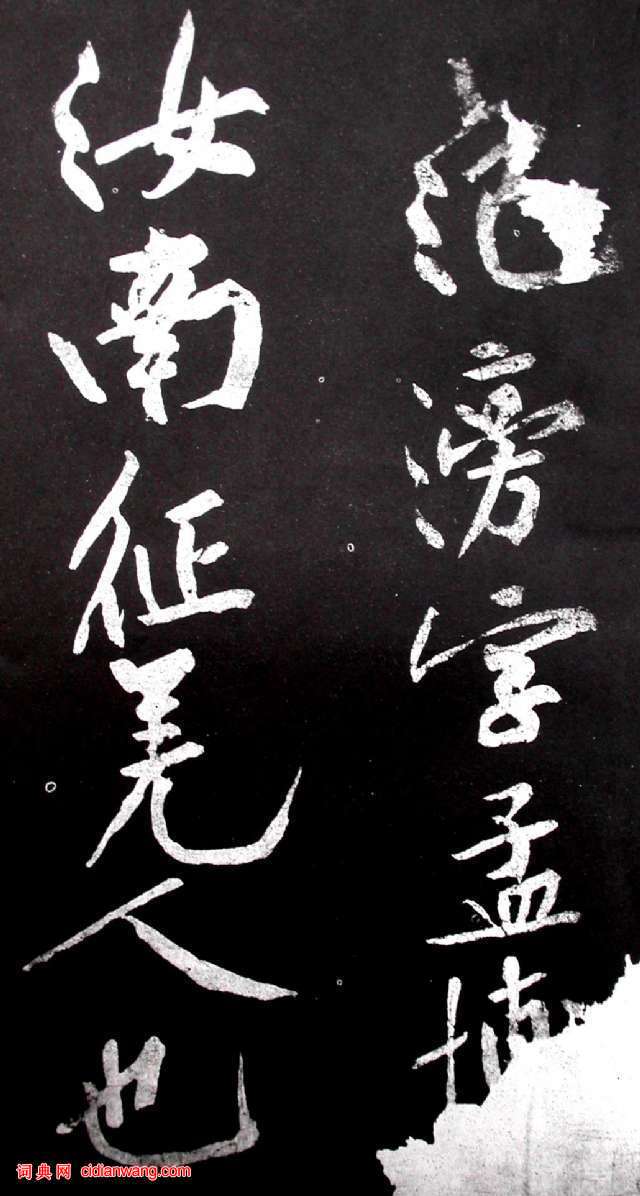 范滂字孟博
汝南征羌人也
词典网 cidianwang.com